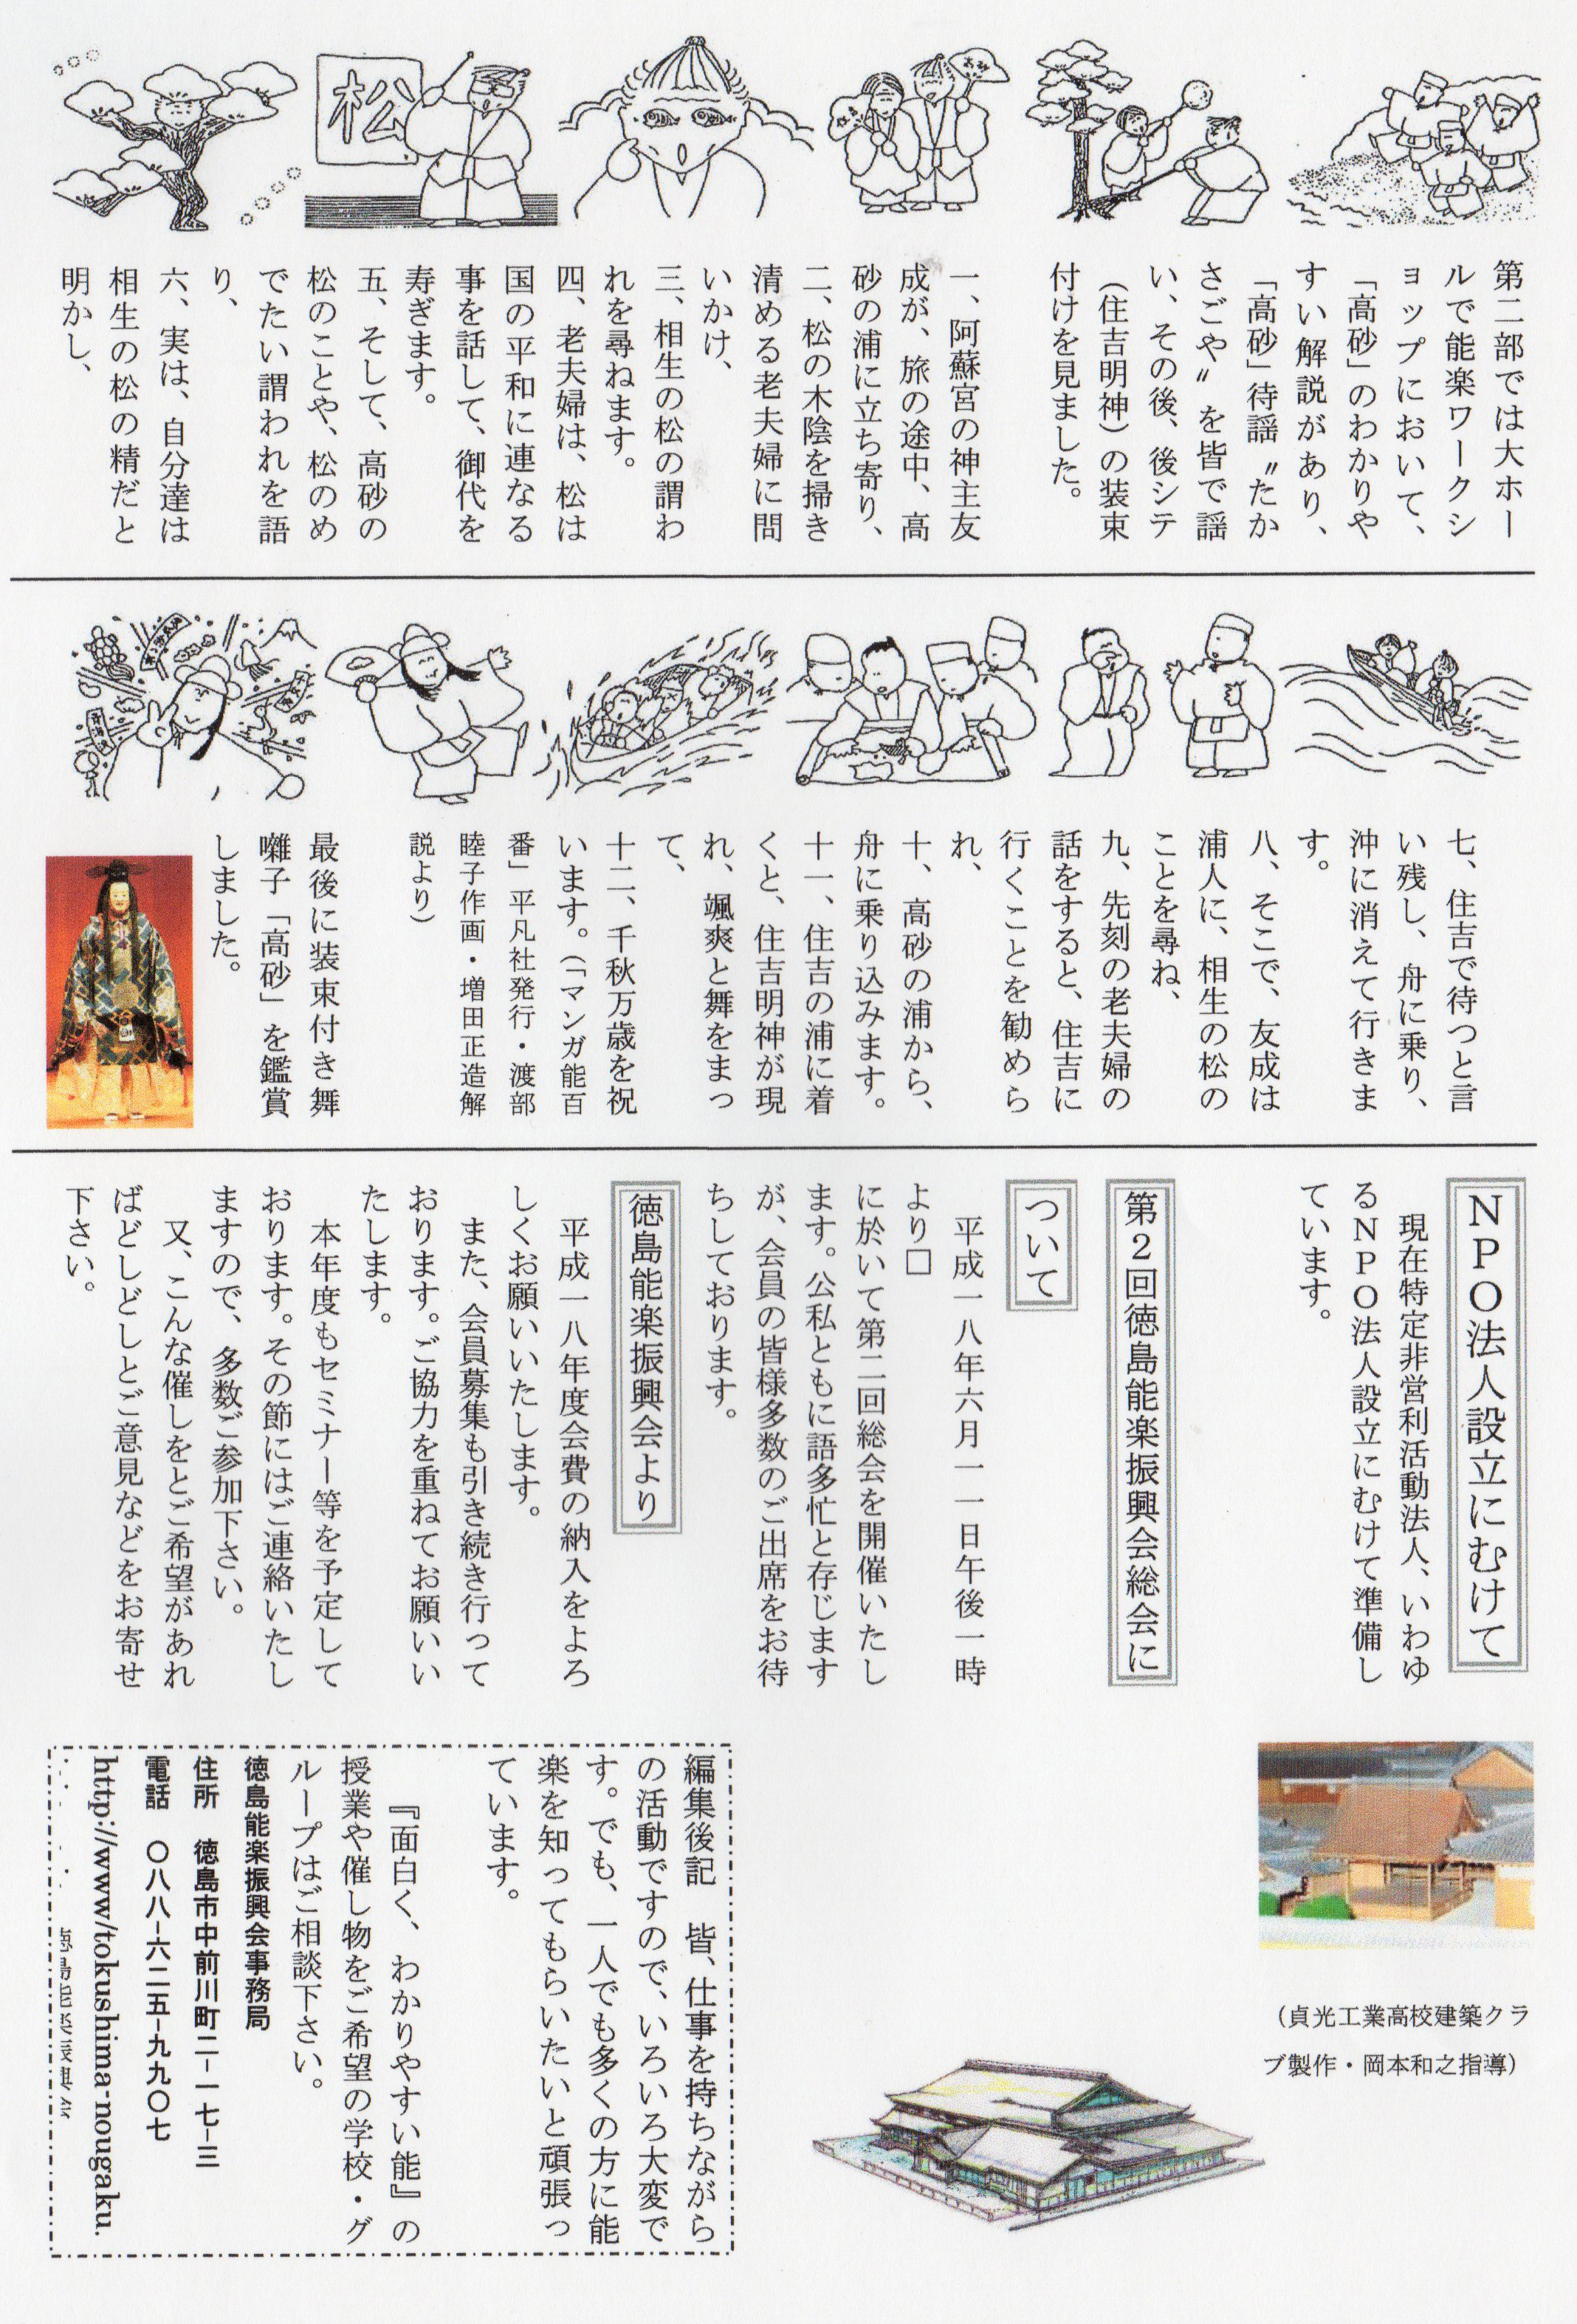 松
第二部では大ホー
ルで能楽ワークシ
ョップにおいて、
「高砂」のわかりや
すい解説があり、
「高砂」待謡〃たか
さごや〃を皆で謡
い、その後、後シテ
（住吉明神）の装束
付けを見ました。
一、阿蘇宮の神主友
成が、旅の途中、高
砂の浦に立ち寄り、
二、松の木陰を掃き
清める老夫婦に問
いかけ、
三、相生の松の謂わ
れを尋ねます。
四、老夫婦は、松は
国の平和に連なる
事を話して、御代を
寿ぎます。
五、そして、高砂の
松のことや、松のめ
でたい謂われを語
り、
六、実は、自分達は
相生の松の精だと
明かし、
七、住吉で待つと言
い残し、舟に乗り、
沖に消えて行きま
す。
八、そこで、友成は
浦人に、相生の松の
ことを尋ね、
九、先刻の老夫婦の
話をすると、住吉に
行くことを勧めら
れ、
十、高砂の浦から、
舟に乗り込みます。
十一、住吉の浦に着
くと、住吉明神が現
れ、颯爽と舞をまっ
て、
十二、千秋万歳を祝
います。（「マンガ能百
番」平凡社発行・渡部
睦子作画・増田正造解
説より）
最後に装束付き舞
囃子「高砂」を鑑賞
しました。
ＮＰＯ法人設立にむけて
現在特定非営利活動法人、いわゆ
るＮＰＯ法人設立にむけて準備し
ています。
第２回徳島能楽振興会総会に
ついて
平成一八年六月一一日午後一時
より□
に於いて第二回総会を開催いたし
ます。公私ともに語多忙と存じます
が、会員の皆様多数のご出席をお待
ちしております。
徳島能楽振興会より
平成一八年度会費の納入をよろ
しくお願いいたします。
また、会員募集も引き続き行って
おります。ご協力を重ねてお願いい
たします。
本年度もセミナー等を予定して
おります。その節にはご連絡いたし
ますので、多数ご参加下さい。
又、こんな催しをとご希望があれ
ばどしどしとご意見などをお寄せ
下さい。
（貞光工業高校建築クラ
ブ製作・岡本和之指導）
編集後記　皆、仕事を持ちながら
の活動ですので、いろいろ大変で
す。でも、一人でも多くの方に能
楽を知ってもらいたいと頑張っ
ています。
『面白く、わかりやすい能』の
授業や催し物をご希望の学校・グ
ループはご相談下さい。
徳島能楽振興会事務局
住所　徳島市中前川町二-一七-三
電話　〇八八-六二五-九九〇七
http://www/tokushima-nougaku.
徳島能楽振興会